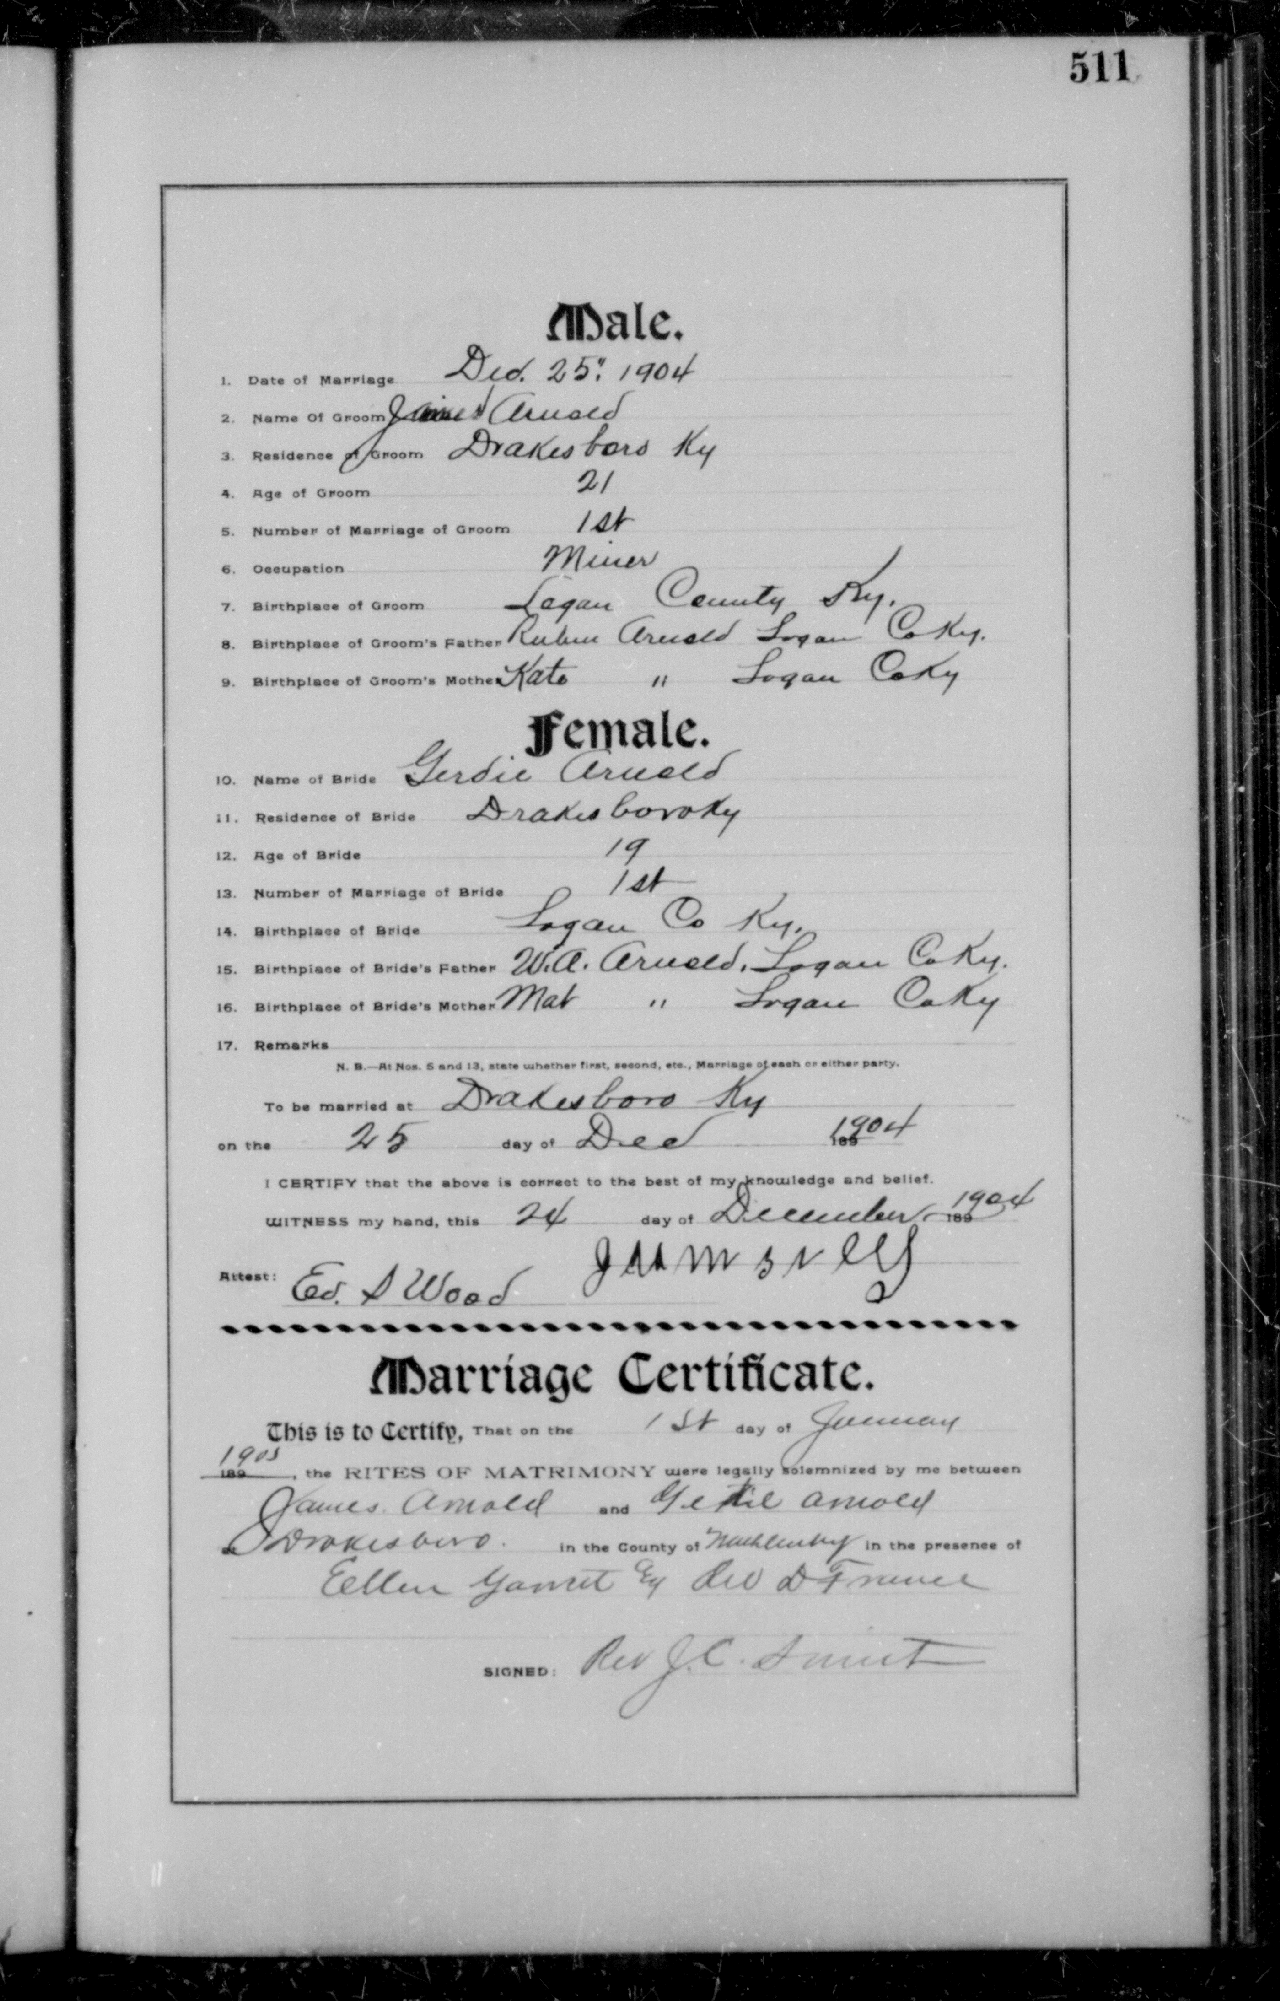 511
Male.
1. Date of Marriage Dec. 25" 1904
2. Name Of Groom James Arnold
3. Residence of Groom Drakesboro Ky
4. Age of Groom 21
5. Number of Marriage of Groom 1st
6. Occupation Miner
7. Birthplace of Groom Logan County Ky.
8. Birthplace of Groom's Father Ruben Arnold Logan Co Ky.
9. Birthplace of Groom's Mother Kate " Logan Co Ky
Female.
10. Name of Bride Gerdie Arnold
11. Residence of Bride Drakesboro Ky
12. Age of Bride 19
13. Number of Marriage of Bride 1st
14. Birthplace of Bride Logan Co Ky.
15. Birthplace of Bride's Father W.A. Arnold, Logan Co Ky.
16. Birthplace of Bride's Mother Mat " Logan Co Ky
17. Remarks
N. B.—At Nos. 5 and 13, state whether first, second, etc., Marriage of each or either party.
To be married at Drakesboro Ky
on the 25 day of Dec 189 1904
I CERTIFY that the above is correct to the best of my knowledge and belief.
WITNESS my hand, this 24 day of December 189 1904
Attest: Ed. S Wood
Marriage Certificate.
This is to Certify, That on the 1st day of January
189 1905, the RITES OF MATRIMONY were legally solemnized by me between
James Arnold and Arnold
at Drakesboro. in the County of Muhlenberg in the presence of
Ellen
SIGNED: Rev J.C.